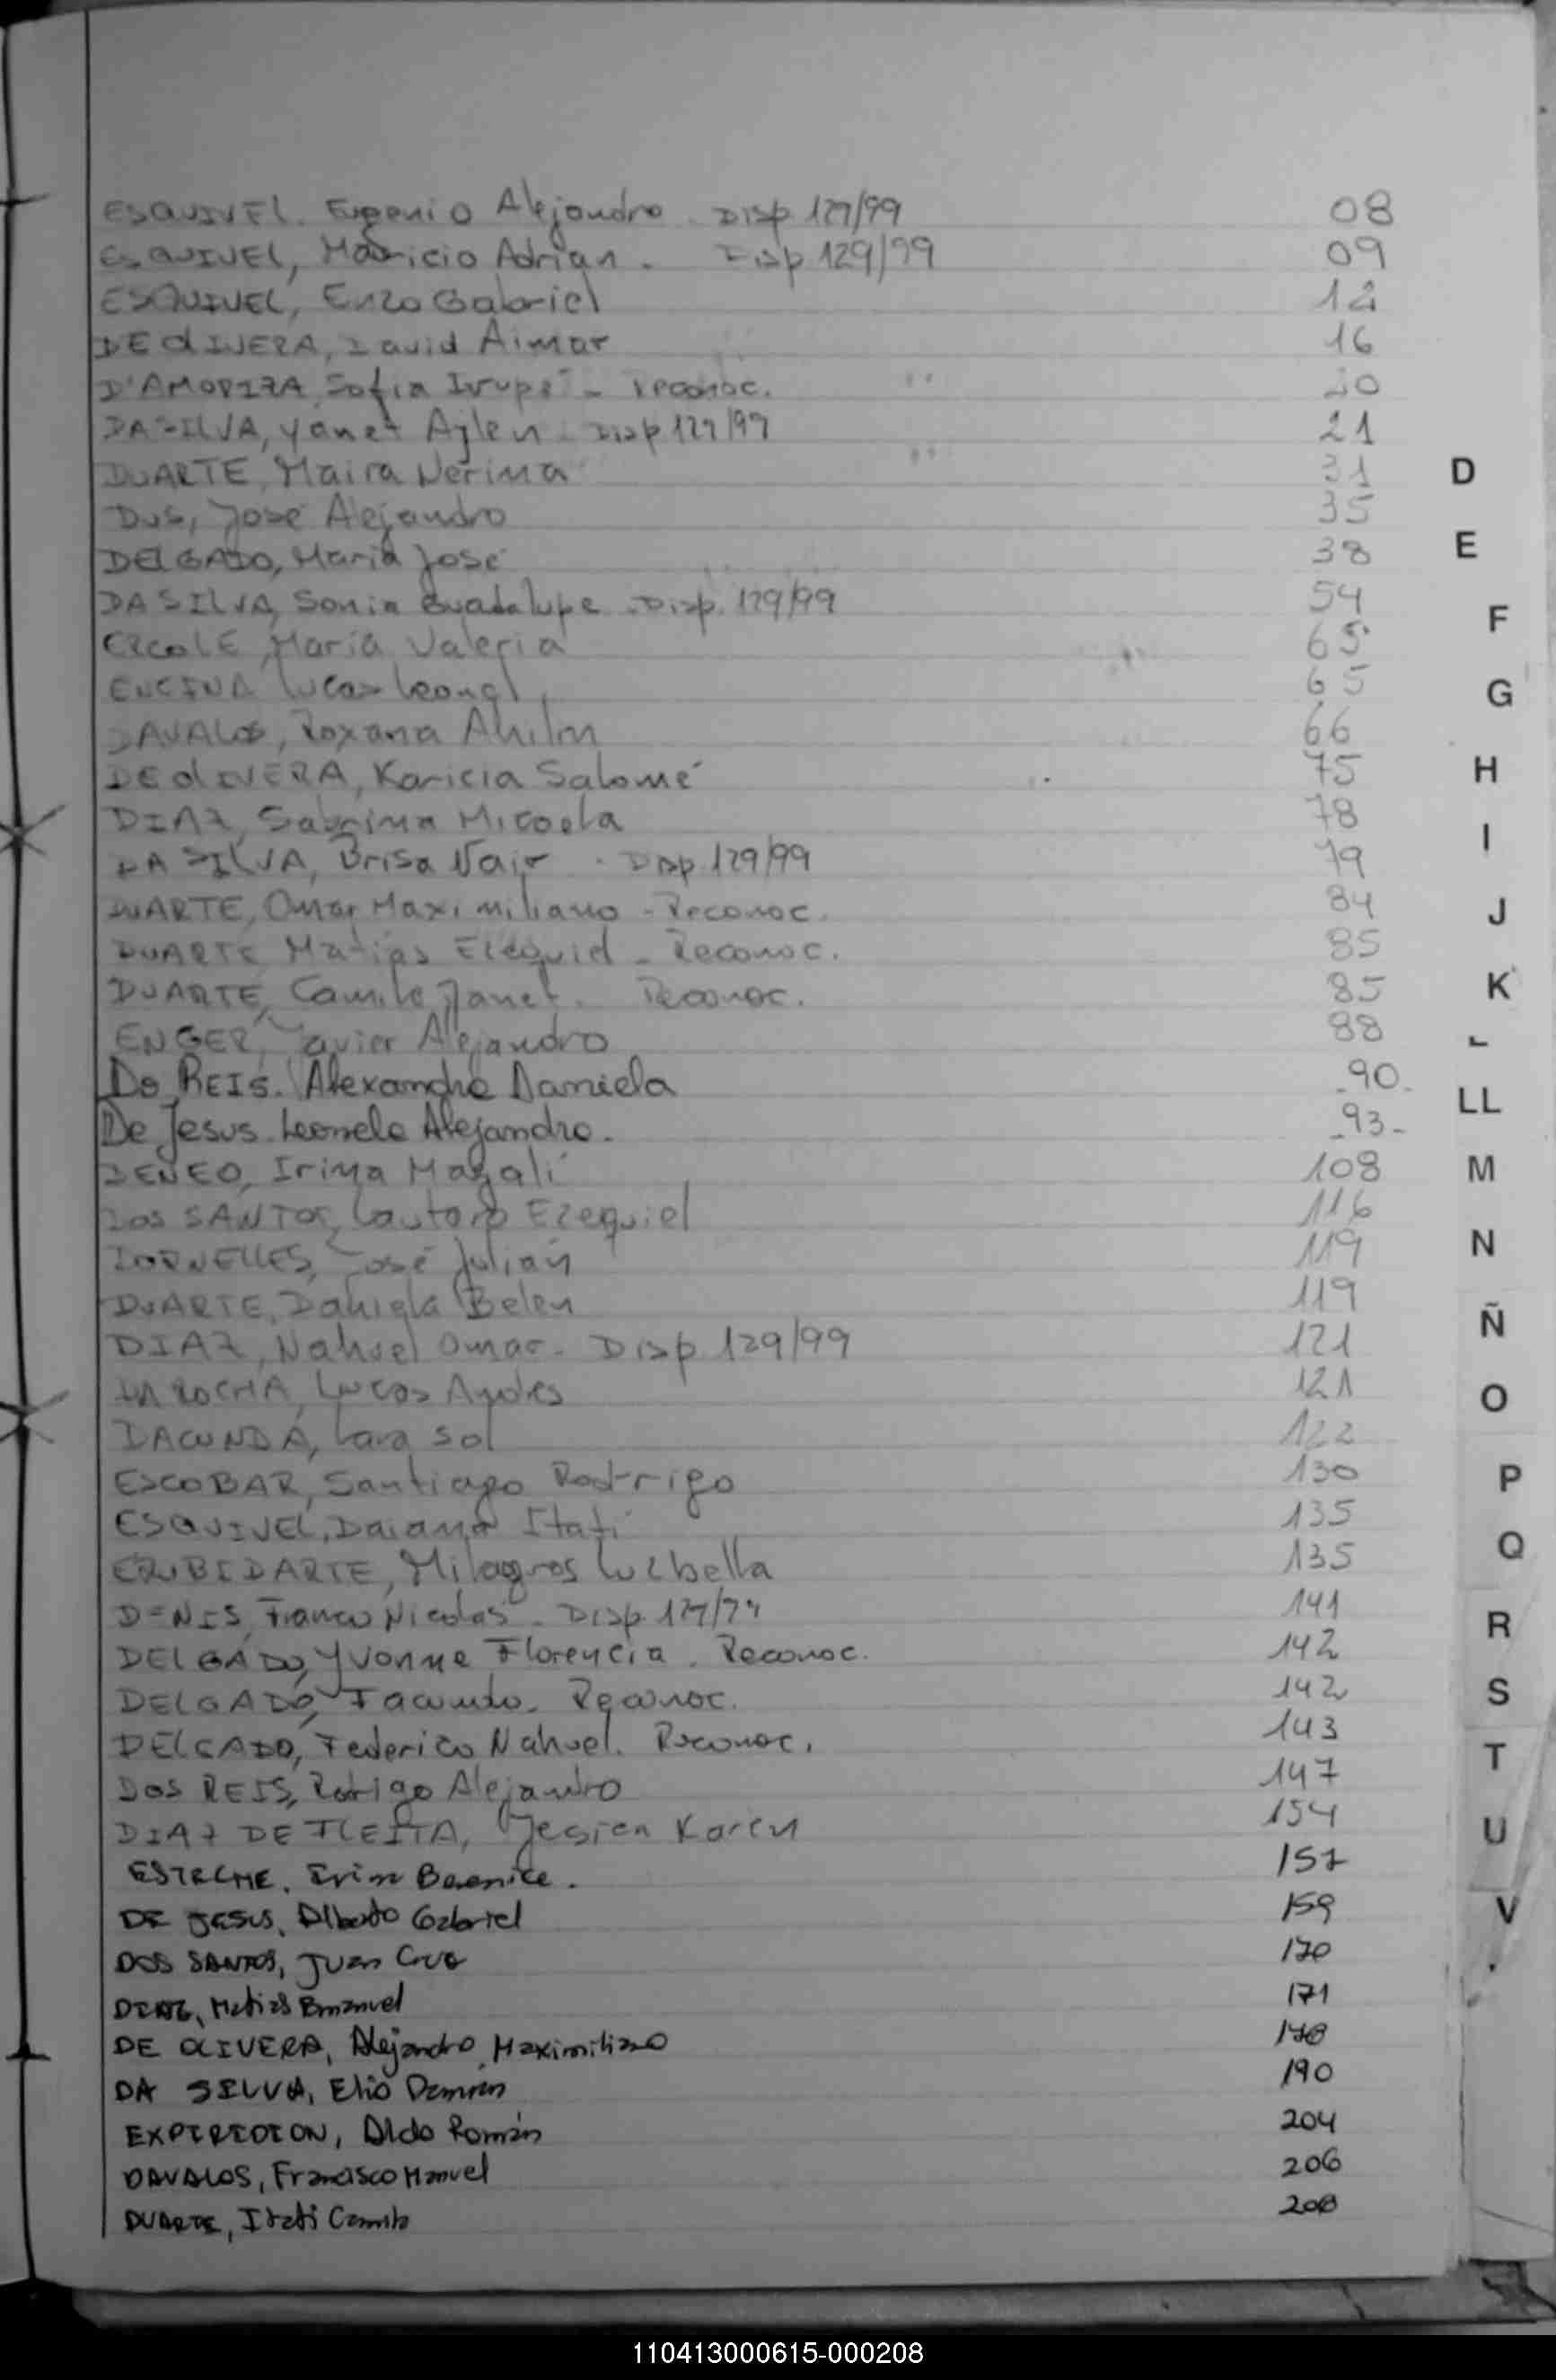 ESQUIVEL. Eugenio Alejandro. Disp 129/99 08
ESQUIVEL, Mauricio Adrian. Disp 129/99 09
ESQUIVEL, Enzo Gabriel 12
DE OLIVERA, David Aimar 16
D'AMORIZA, Sofia Irupé - Reconoc. 20
DA SILVA, Yanet Aylen - Disp 129/99 21
DUARTE, Maira Nerina 31
D
DUS, José Alejandro 35
DELGADO, Maria José 38
E
DA SILVA, Sonia Guadalupe. Disp. 129/99 54
F
ERCOLE, María Valeria 65
ENCINA Lucas Leonel 65
G
DAVALOS, Roxana Ahilin 66
DE OLIVERA, Karicia Salomé 75
H
DIAZ, Sabrina Micaela 78
I
DA SILVA, Brisa Nair. Disp 129/99 79
DUARTE, Omar Maximiliano - Reconoc. 84
J
DUARTE Matias Ezequiel - Reconoc. 85
DUARTE, Camila Janet. Reconoc. 85
K
ENGER, Javier Alejandro 88
L
Do REIS. Alexandre Daniela -90-
LL
De Jesus. Leonela Alejandra. -93-
DENEO, Irina Magalí 108
M
DOS SANTOS, Lautaro Ezequiel 116
DORNELLES, José Julián 119
N
DUARTE, Daniela Belen 119
Ñ
DIAZ, Nahuel Omar. Disp 129/99 121
DA ROCHA, Lucas Andres 121
O
DACUNDA, Lara Sol 122
ESCOBAR, Santiago Rodrigo 130
P
ESQUIVEL, Daiana Itatí 135
Q
ERUBIDARTE, Milagros Luzbella 135
DENIS, Franco Nicolas - Disp. 129/99 141
R
DELGADO, Yvonne Florencia. Reconoc. 142
DELGADO, Facundo. Reconoc. 142
S
DELGADO, Federico Nahuel. Reconoc. 143
T
DOS REIS, Rodrigo Alejandro 147
DIAZ DE FLEITA, Jesica Karen 154
U
ESTECHE. Berenice. 157
DE JESUS, Alberto Gabriel 159
V
DOS SANTOS, Juan Cruz 170
DIAZ, Matias Emanuel 171
DE OLIVERA, Alejandro Maximiliano 178
DA SILVA, Elio Damian 190
EXPIRIDION, Aldo Román 204
DAVALOS, Francisco Manuel 206
DUARTE, Itatí Camila 208
110413000615-000208